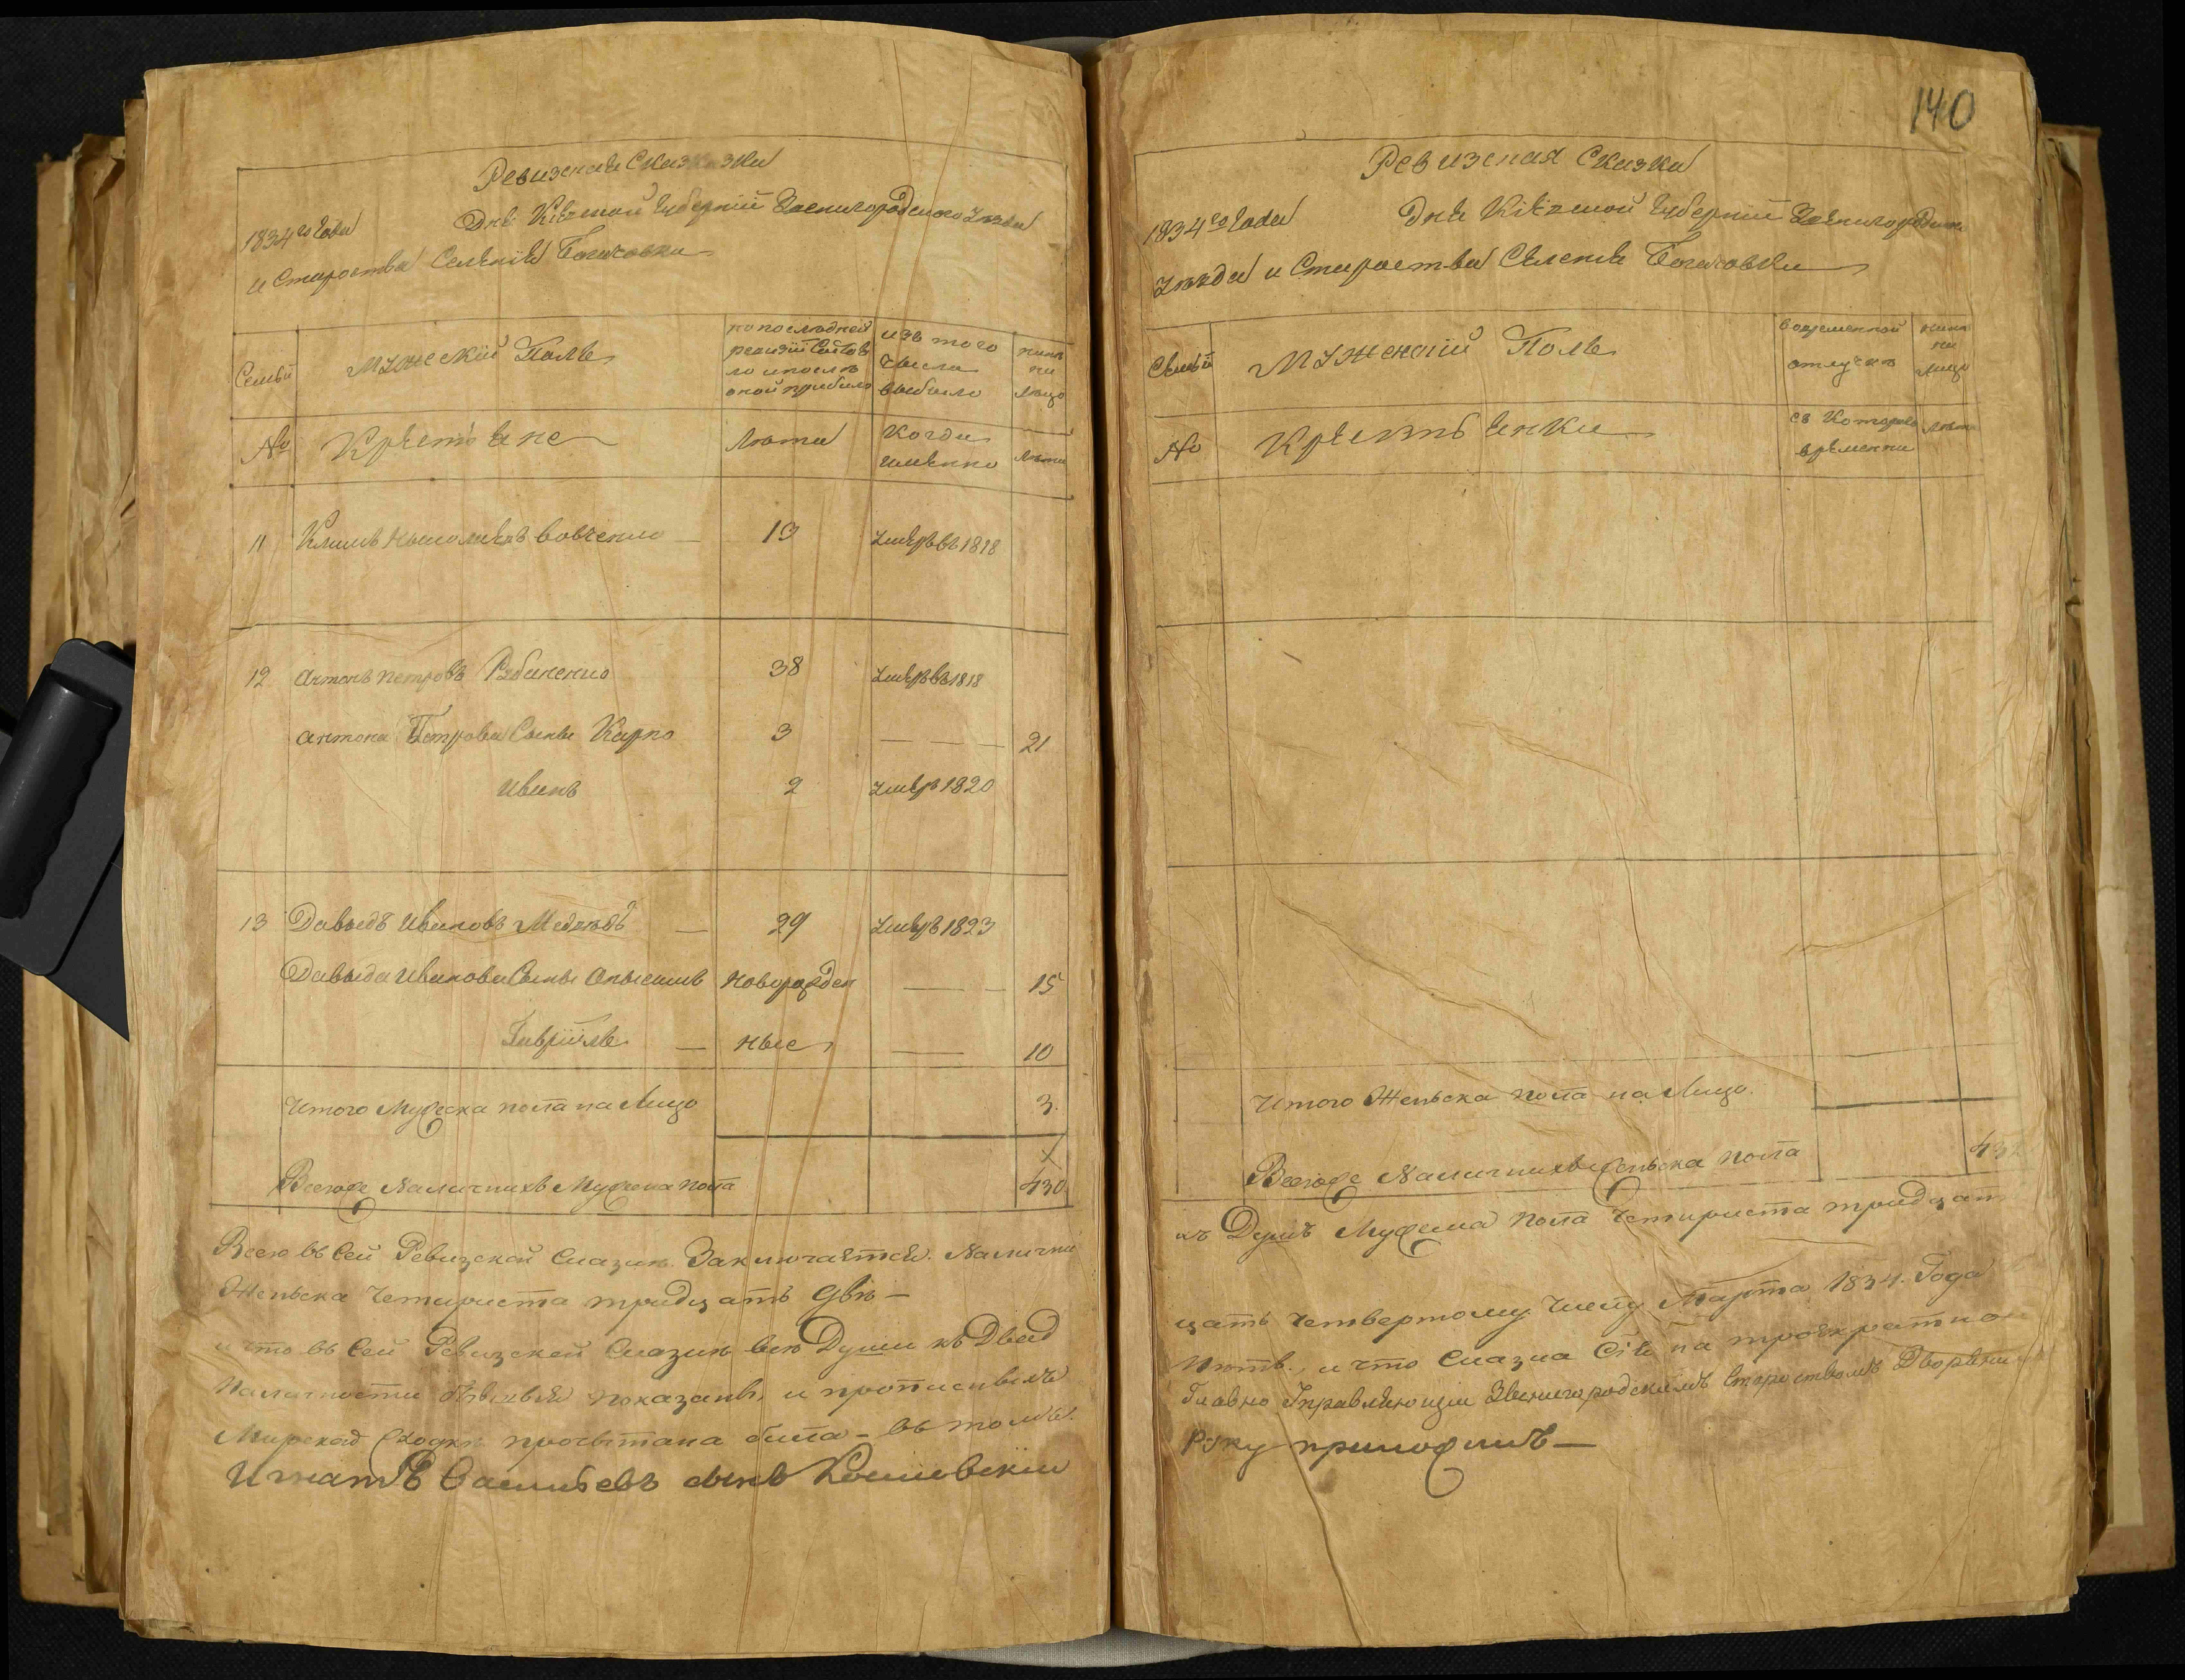 Ревизская Сказка
1834го Года Дня Кіевской Губерніи Звенигородского Уезда
и Староства Селенія Богачовки
Семьи
Мужескій Полъ
по последней ревизіи Состояло и после оной прибыло
изъ того числа выбыло
ныне на лицо
№
Крестьяне
Лета
Когда именно
Лета
11 Климъ Вовченко — 13 Умеръ въ 1818
12 Антонъ Петровъ Рубаненко 38 Умеръ въ 1818
Антона Петрова Сынъ Карпо 3 — — 21
Иванъ 2 Умеръ 1820
13 Давыдъ Ивановъ Медведъ — 29 Умеръ 1823
Давыда Иванова Сынъ Онысимъ Новорожден — 15
Гавріилъ — ные — 10
Итого Мужеска пола на Лицо 3.
Всегоже Наличныхъ Мужеска пола 430
Всего въ Сей Ревизской Сказки Заключается. Налични
Женьска Четыриста тридцать две —
и что въ Сей Ревизской Сказки все Души къ Двад
Наличности показаны, и прописныхъ
Мирской сходки прочитана была - въ томъ.
Игнатъ Васильевъ сынъ
140
Ревизская Сказка
1834го Года Дня Кіевской Губерніи Звенигородского
Уезда и Староства Селенія Богачовки
Семьи
Женскій Полъ
во временной отлучке
ныне на лицо
№
Крестьянки
съ Которого времени
Лета
Итого Женьска пола на Лицо.
Всегоже Наличныхъ Женьска пола 432
хъ Душъ Мужеска пола Четыриста тридцат
цать Четвертому Числу Марта 1834. Года
нетъ., и что Сказка Сія на троекратно
Главно Управляющи Звенигородскимъ Староствомъ Дворяни
Руку приложилъ —